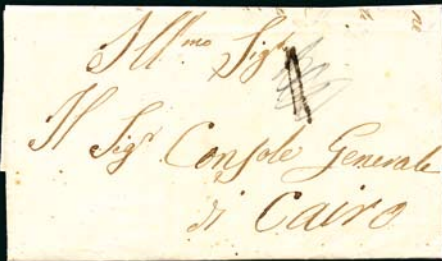 Ill.mo Sig.r
Il Sig.r Console Generale
di Cairo